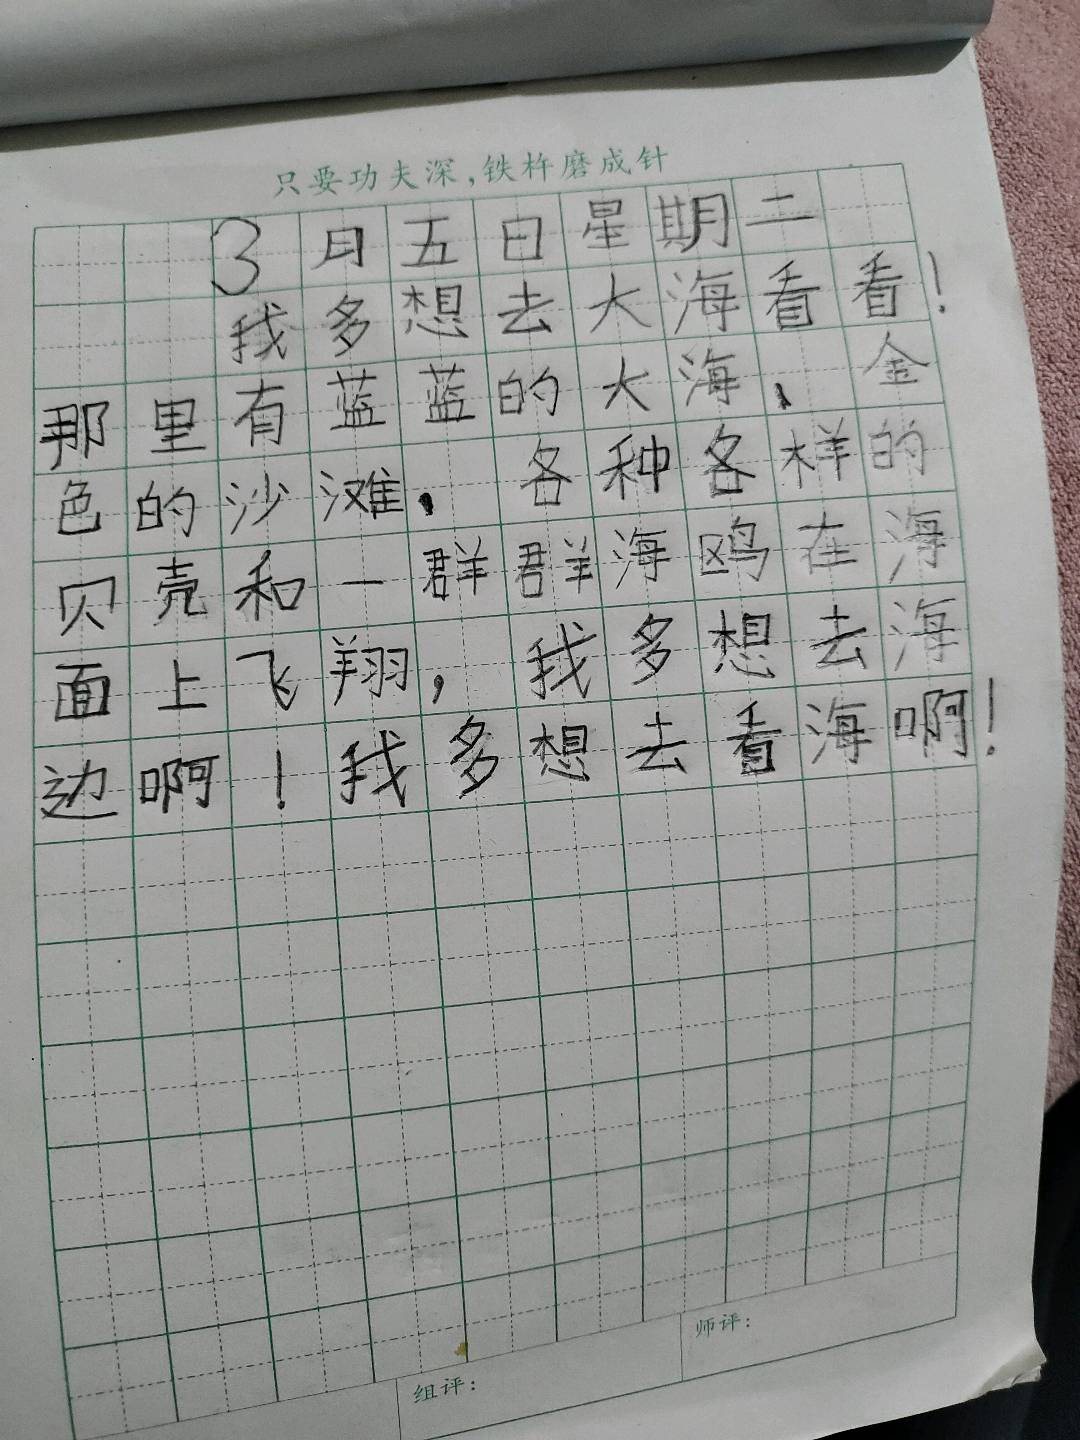 只要功夫深,铁杵磨成针
3月五日星期二
我多想去大海看看!
那里有蓝蓝的大海、金
色的沙滩，各种各样的
贝壳和一群群海鸥在海
面上飞翔，我多想去海
边啊!我多想去看海啊!
师评:
组评: